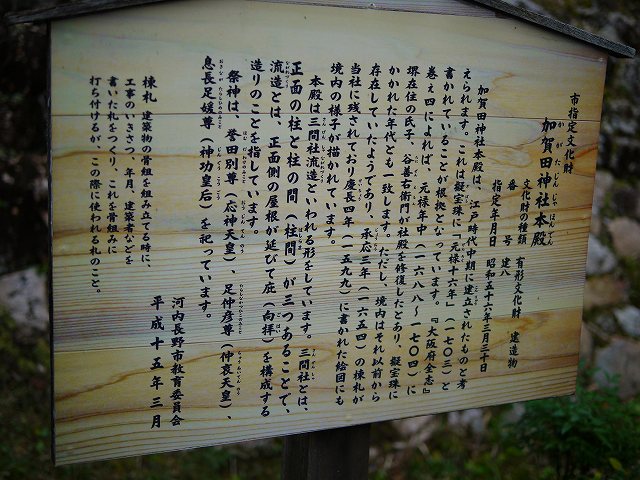 市指定文化財
加賀田神社本殿
かがたじんじゃほんでん
文化財の種類 有形文化財 建造物
番号 建八
指定年月日 昭和五十六年三月三十日
加賀田神社本殿は、江戸時代中期に建立されたものと考
えられます。これは擬宝珠に「元禄十六年」(一七〇三)と
書かれていることが根拠となっています。『大阪府全志』
巻之四によれば、元禄年中(一六八八〜一七〇四)に
堺在住の氏子、谷善右衛門が社殿を修復したとあり、擬宝珠に
かかれた年代とも一致します。ただし、境内はそれ以前から
存在していたようであり、承応三年(一六五四)の棟札が
当社に残されており慶長四年(一五九九)に書かれた絵図にも
境内の様子が描かれています。
本殿は三間社流造といわれる形をしています。三間社とは、
正面の柱と柱の間(柱間)が三つあることで、
流造とは、正面側の屋根が延びて庇(向拝)を構成する
造りのことを指しています。
祭神は、誉田別尊(応神天皇)、足仲彦尊(仲哀天皇)、
息長足媛尊(神功皇后)を祀っています。
棟札 建築物の骨組を組み立てる時に、
工事のいきさつ、年月、建築者などを
書いた札をつくり、これを骨組みに
打ち付けるが、この際に使われる札のこと。
河内長野市教育委員会
平成十五年三月